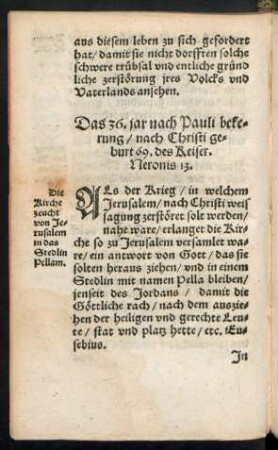 aus diesem leben zu sich gefordert
hat / damit sie nicht dorfften solche
schwere trübsal vnd entliche gründ
liche zerstörung jres Volcks vnd
Vaterlands ansehen.
Das 36. jar nach Pauli beke-
rung / nach Christi ge-
burt 69. des Keiser.
Neronis 13.
Die
Kirche
zeucht
von Je-
rusalem
in das
Stedlin
Pellam.
Als der Krieg / in welchem
Jerusalem / nach Christi weis
sagung zerstöret solt werden /
nahe ware / erlanget die Kir-
che so zu Jerusalem versamlet wa-
re / ein antwort von Gott / das sie
solten heraus ziehen / vnd in einem
Stedlin mit namen Pella bleiben /
jenseit des Jordans / damit die
Göttliche rach / nach dem auszie-
hen der heiligen vnd gerechte Leu-
te / stat vnd platz hette / etc. Eu-
sebius.
In